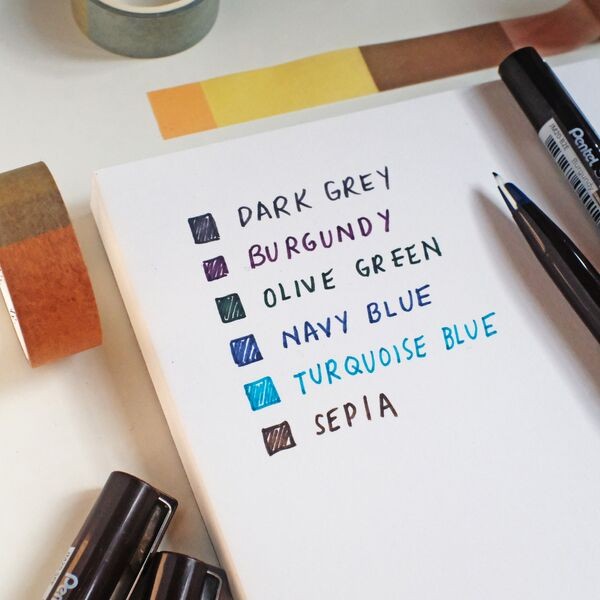 DARK GREY
BURGUNDY
OLIVE GREEN
NAVY BLUE
TURQUOISE BLUE
SEPIA
Pentel
Burgundy
Pentel